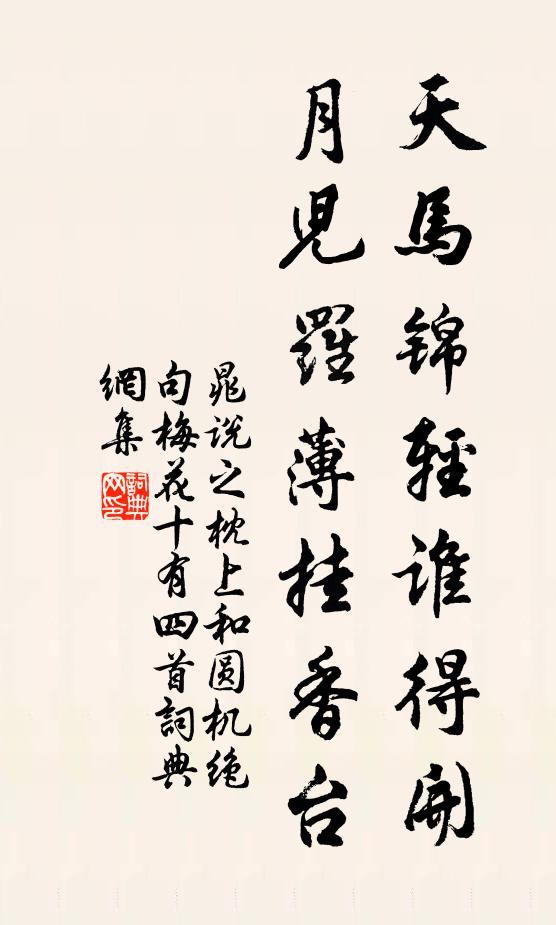 天馬锦輕誰得開
月児羅薄挂香台
晁说之枕上和圆机绝
句梅花十有四首詞典
網集
詞典
网印